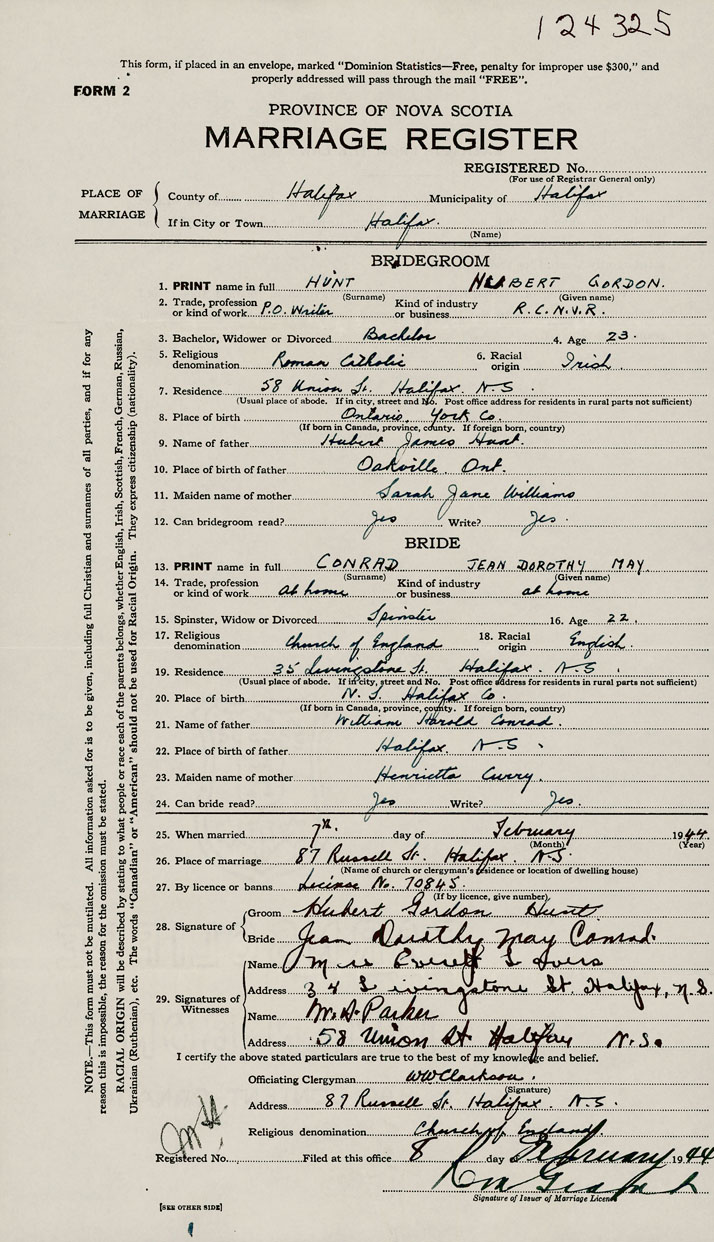 124325
This form, if placed in an envelope, marked "Dominion Statistics—Free, penalty for improper use $300," and
properly addressed will pass through the mail "FREE".
FORM 2
PROVINCE OF NOVA SCOTIA
MARRIAGE REGISTER
REGISTERED No.
(For use of Registrar General only)
PLACE OF MARRIAGE
County of Halifax Municipality of Halifax
If in City or Town Halifax.
(Name)
BRIDEGROOM
1. PRINT name in full HUNT HERBERT GORDON.
(Surname) (Given name)
2. Trade, profession or kind of work P.O. Writer Kind of industry or business R.C.N.V.R.
3. Bachelor, Widower or Divorced Bachelor 4. Age 23.
5. Religious denomination Roman Catholic 6. Racial origin Irish.
7. Residence 58 Union St. Halifax. N.S.
(Usual place of abode. If in city, street and No. Post office address for residents in rural parts not sufficient)
8. Place of birth Ontario, York Co.
(If born in Canada, province, county. If foreign born, country)
9. Name of father Hubert James Hunt.
10. Place of birth of father Oakville Ont.
11. Maiden name of mother Sarah Jane Williams
12. Can bridegroom read? Yes Write? Yes.
BRIDE
13. PRINT name in full CONRAD JEAN DOROTHY MAY.
(Surname) (Given name)
14. Trade, profession or kind of work at home Kind of industry or business at home
15. Spinster, Widow or Divorced Spinster 16. Age 22.
17. Religious denomination Church of England 18. Racial origin English.
19. Residence 35 Livingstone St. Halifax. N.S.
(Usual place of abode. If in city, street and No. Post office address for residents in rural parts not sufficient)
20. Place of birth N.S. Halifax Co.
(If born in Canada, province, county. If foreign born, country)
21. Name of father William Harold Conrad.
22. Place of birth of father Halifax. N.S.
23. Maiden name of mother Henrietta Curry.
24. Can bride read? Yes Write? Yes.
25. When married 7th. day of February 1944
(Month) (Year)
26. Place of marriage 87 Russell St. Halifax. N.S.
(Name of church or clergyman's residence or location of dwelling house)
27. By licence or banns License No. 70845.
(If by licence, give number)
28. Signature of
Groom Hubert Gordon Hunt
Bride Jean Dorothy May Conrad.
29. Signatures of Witnesses
Name Mrs Everett
Address 34 Livingstone St Halifax, N.S.
Name W.A. Parker
Address 58 Union St Halifax N.S.
I certify the above stated particulars are true to the best of my knowledge and belief.
Officiating Clergyman WW Clarkson.
(Signature)
Address 87 Russell St. Halifax. N.S.
Religious denomination Church of England
Registered No. Filed at this office 8 day of February 1944
Signature of Issuer of Marriage Licence
[SEE OTHER SIDE]
NOTE.—This form must not be mutilated. All information asked for is to be given, including full Christian and surnames of all parties, and if for any
reason this is impossible, the reason for the omission must be stated.
RACIAL ORIGIN will be described by stating to what people or race each of the parents belongs, whether English, Irish, Scottish, French, German, Russian,
Ukrainian (Ruthenian), etc. The words "Canadian" or "American" should not be used for Racial Origin. They express citizenship (nationality).